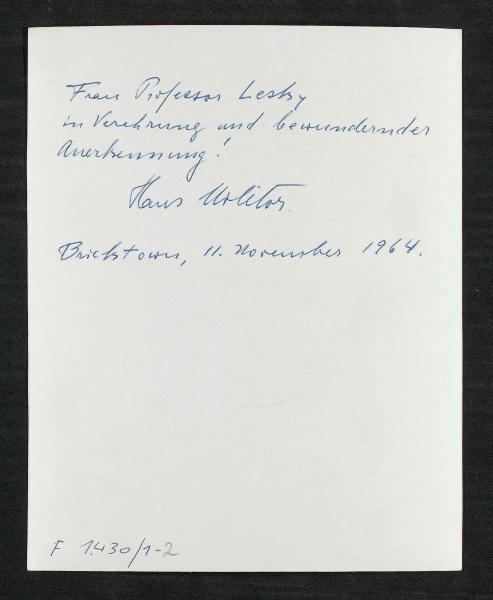 Frau Professor Lesky
in Verehrung und bewundernder
Anerkennung!
Hans Molitor.
Bricktown, 11. November 1964.
F 1430/1-2